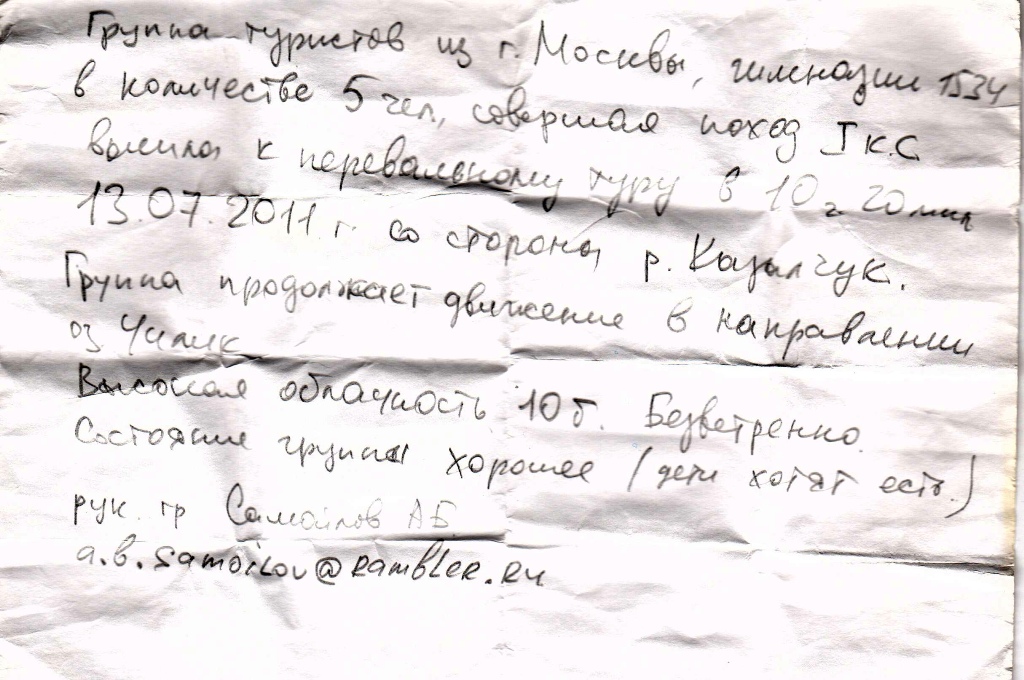 Группа туристов из г. Москвы, гимназии 1534
в количестве 5 чел., совершая поход I к.с.
вышла к перевальному туру в 10 ч 20 мин
13.07.2011 г. со стороны р. Казылчук.
Группа продолжает движение в направлении
оз Чилик
Высокая облачность 10 б. Безветренно.
Состояние группы хорошее (дети хотят есть.)
рук. гр Самойлов АБ
a.b.samoilov@rambler.ru